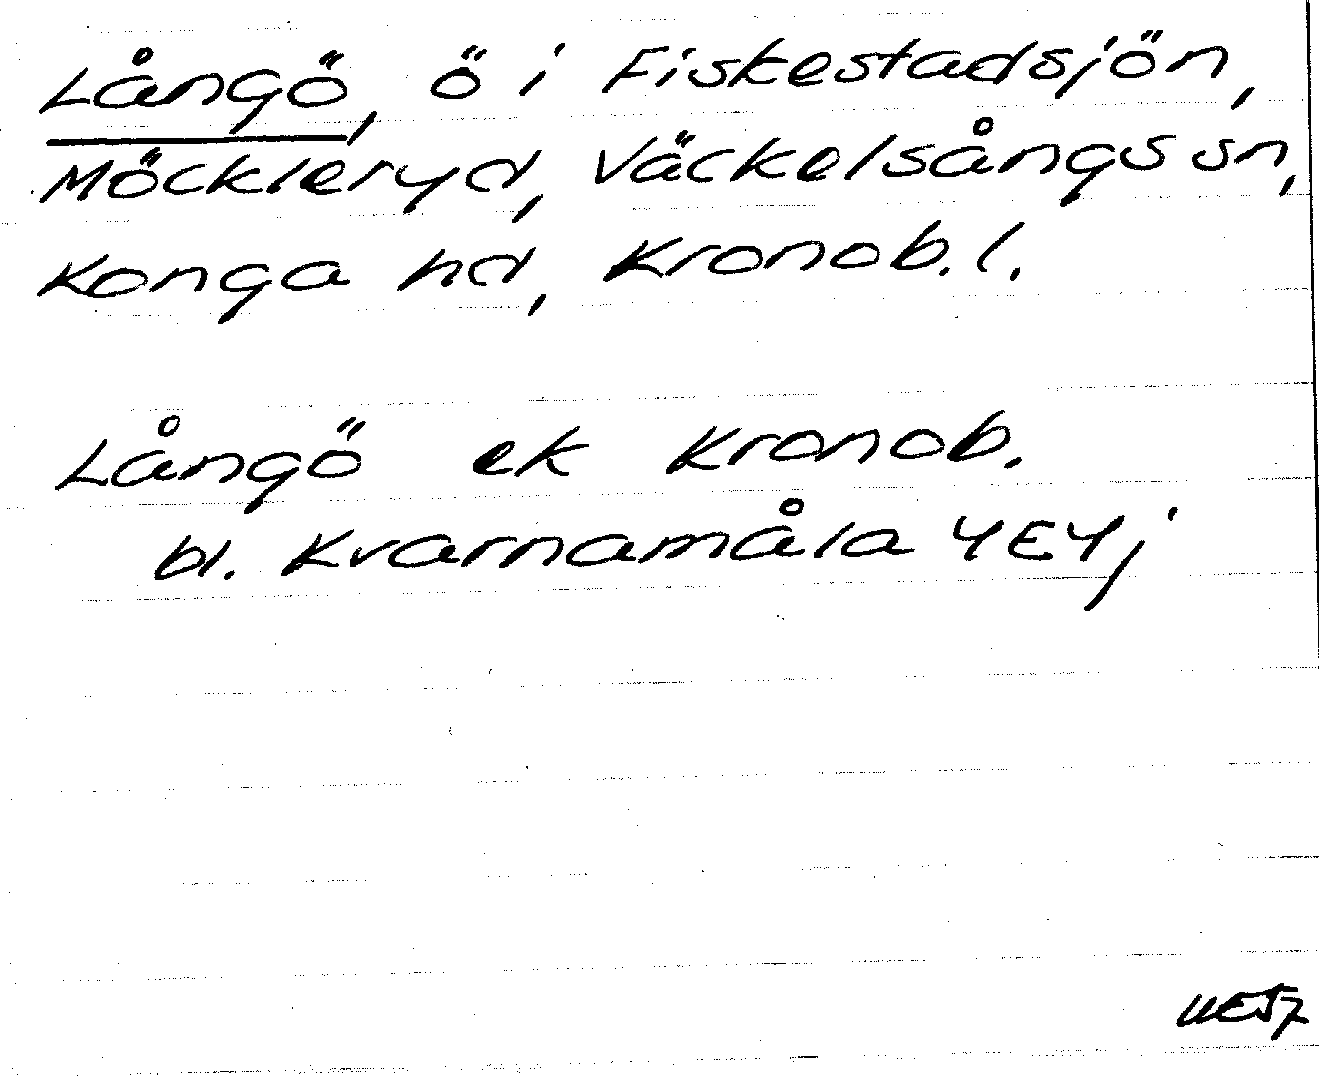 Långö, ö i Fiskestadsjön,
Möckleryd, Väckelsångs sn,
Konga hd, Kronob. l.
Långö ek Kronob.
bl. Kvarnamåla 4E4j